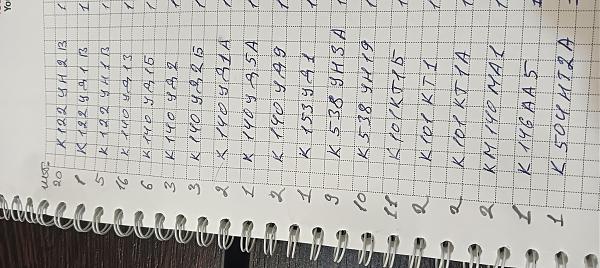 шт.
20 К122УН2В 1
1 К122УД1В 1
5 К122УН1В 1
16 К140УД13 1
6 К140УД1Б 1
3 К140УД2 1
3 К140УД2Б 1
2 К140УД1А 1
1 К140УД5А 1
2 К140УД9 1
1 К153УД1 1
9 К538УН3А 1
10 К538УН19 1
11 К101КТ1Б 1
2 К101КТ1 1
2 К101КТ1А 1
2 КМ140МА1 1
1 К146АА5
1 К504НТ2А